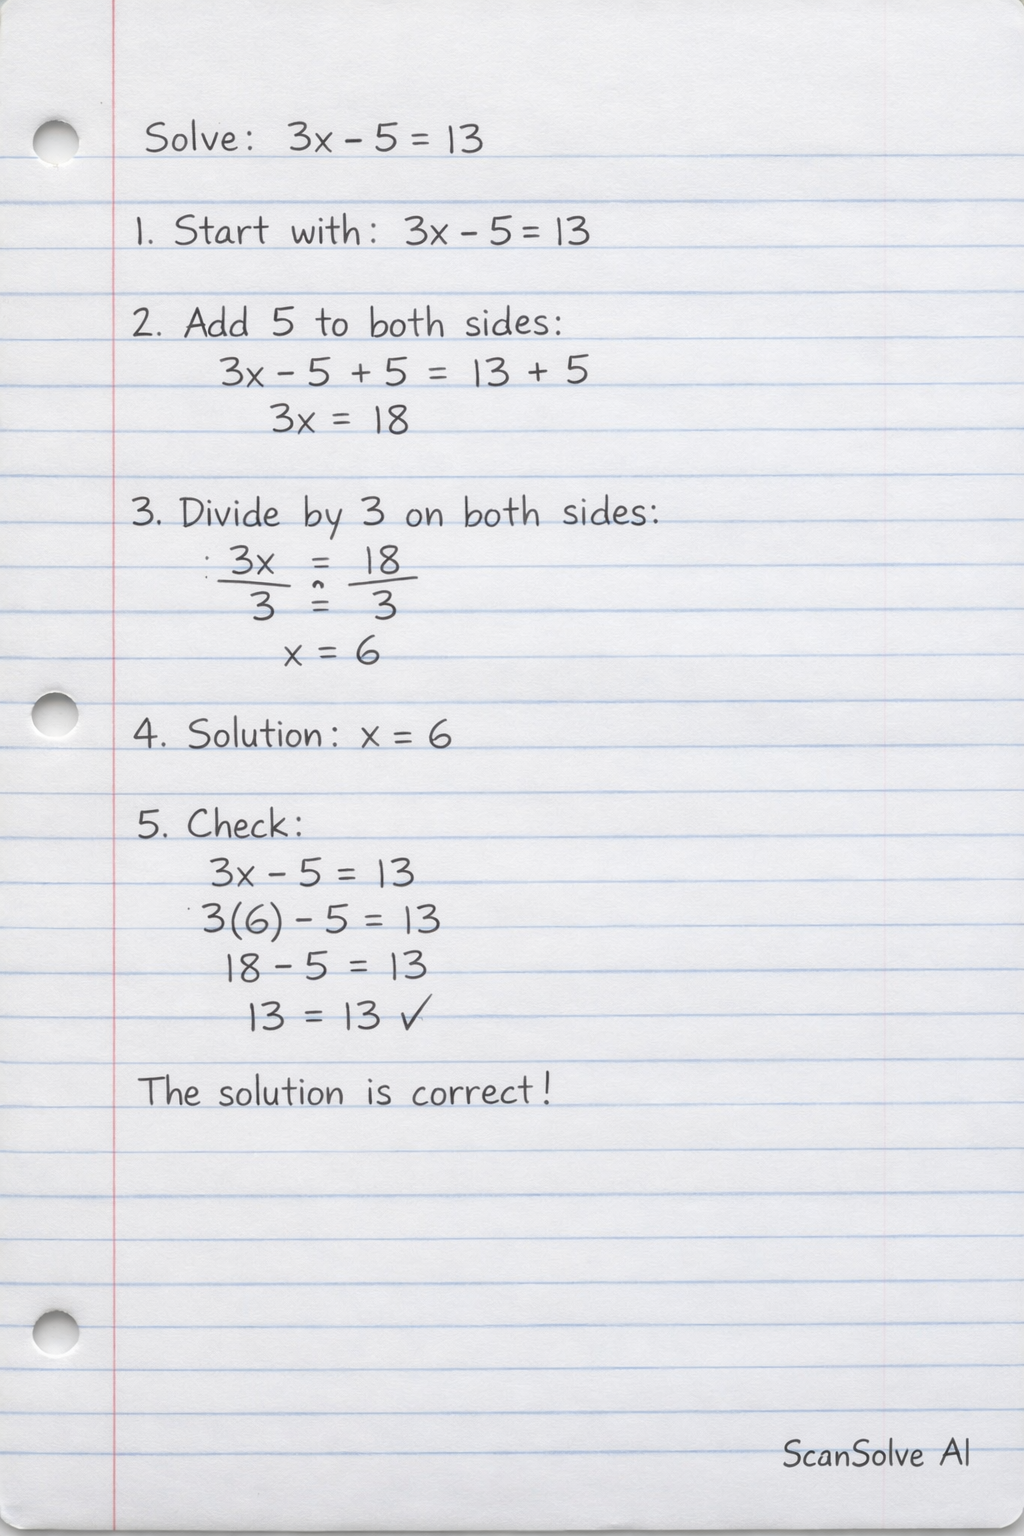 Solve: 3x - 5 = 13
1. Start with: 3x - 5 = 13
2. Add 5 to both sides:
3x - 5 + 5 = 13 + 5
3x = 18
3. Divide by 3 on both sides:
3x = 18
3 = 3
x = 6
4. Solution: x = 6
5. Check:
3x - 5 = 13
3(6) - 5 = 13
18 - 5 = 13
13 = 13 ✓
The solution is correct!
ScanSolve AI